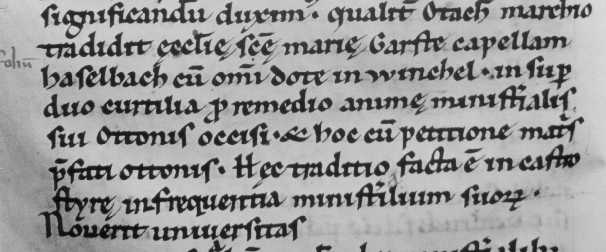 significandū duxim᷒. qualit̄ Otach̄ marchio
tradidit ęcclię scē marię Garstē capellam
haselbach cū om̄i dote in winchel. in sup̄
duo curtilia p̄ remedio animę minist̄ialis
sui Ottonis occisi. & hoc cū petitione mat̄s
p̄fati ottonis. Hęc traditio facta ē in castro
styrę in frequentia minist̄lium suoꝝ.
Noverit universitas